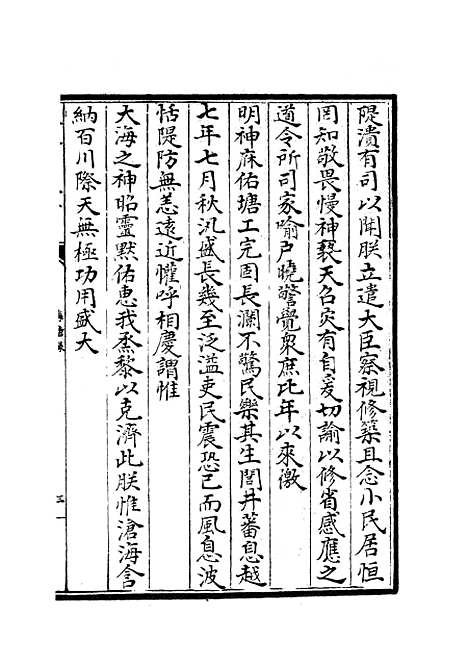 隄潰有司以聞朕立遣大臣察視修築且念小民居恒
罔知敬畏慢神褻天召災有自爰切諭以修省感應之
道令所司家喻戶曉警覺衆庶比年以來徼
明神庥佑塘工完固長瀾不驚民樂其生閭井蕃息越
七年七月秋汛盛長幾至泛溢吏民震恐已而風息波
恬隄防無恙遠近懽呼相慶謂惟
大海之神昭靈默佑惠我烝黎以克濟此朕惟滄海含
納百川際天無極功用盛大